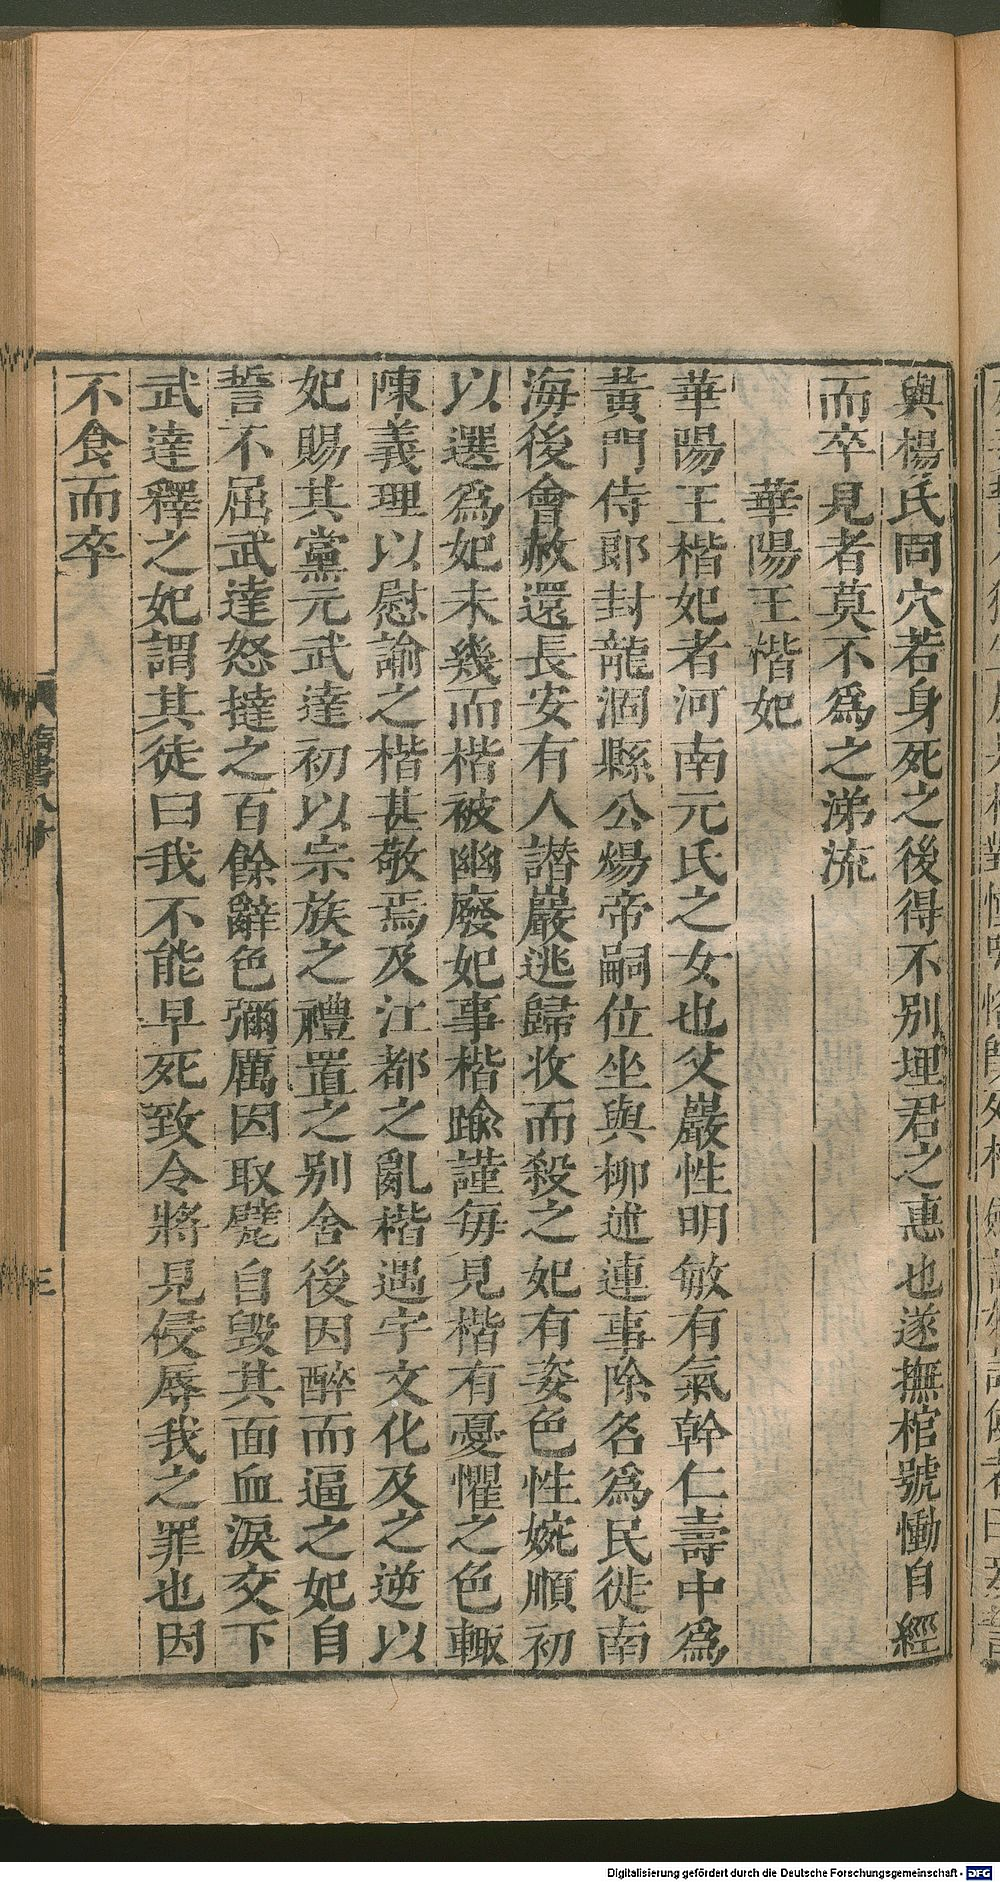 與楊氏同穴若身死之後得不別埋君之惠也遂撫棺號慟自經
而卒見者莫不爲之涕流
華陽王楷妃
華陽王楷妃者河南元氏之女也父巖性明敏有氣幹仁壽中爲
黃門侍郎封龍涸縣公煬帝嗣位坐與柳述連事除名爲民徙南
海後會赦還長安有人譖巖逃歸收而殺之妃有姿色性婉順初
以選爲妃未幾而楷被幽廢妃事楷踰謹每見楷有憂懼之色輒
陳義理以慰諭之楷甚敬焉及江都之亂楷遇宇文化及之逆以
妃賜其黨元武達初以宗族之禮置之別舍後因醉而逼之妃自
誓不屈武達怒撻之百餘辭色彌厲因取甓自毀其面血淚交下
武達釋之妃謂其徒曰我不能早死致令將見侵辱我之罪也因
不食而卒
三
Digitalisierung gefördert durch die Deutsche Forschungsgemeinschaft - DFG